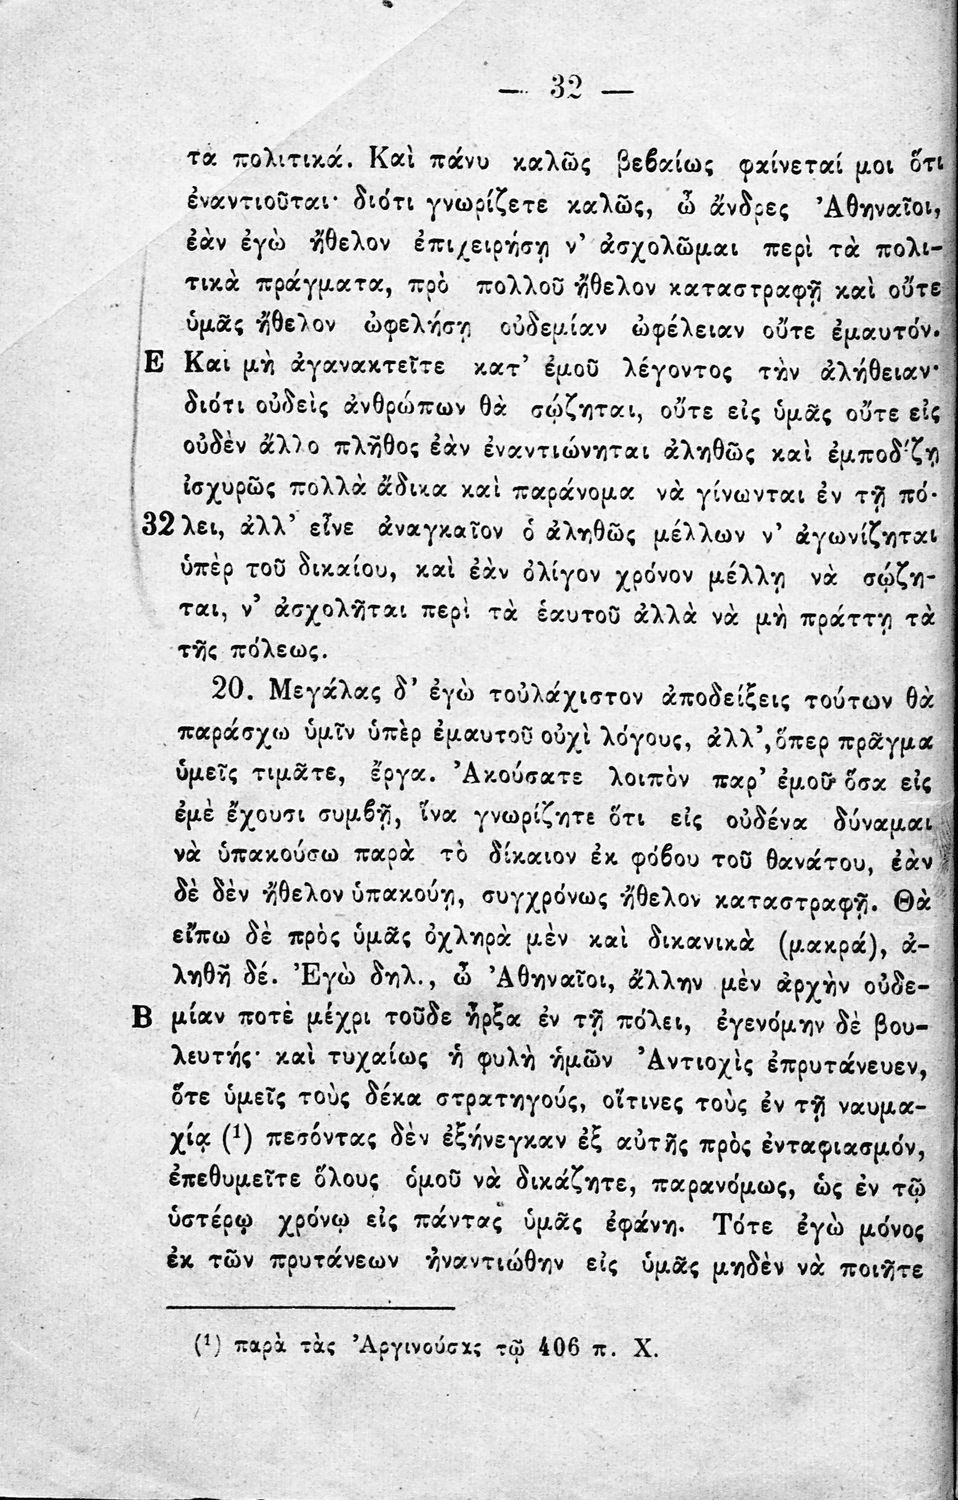 — 32 —
τα πολιτικά. Καὶ πάνυ καλῶς βεβαίως φαίνεταί μοι ὅτι
ἐναντιοῦται· διότι γνωρίζετε καλῶς, ὦ ἄνδρες Ἀθηναῖοι,
ἐὰν ἐγὼ ἤθελον ἐπιχειρήσῃ ν’ ἀσχολῶμαι περὶ τὰ πολι-
τικὰ πράγματα, πρὸ πολλοῦ ἤθελον καταστραφῇ καὶ οὔτε
ὑμᾶς ἤθελον ὠφελήσῃ οὐδεμίαν ὠφέλειαν οὔτε ἐμαυτόν.
Ε Καὶ μὴ ἀγανακτεῖτε κατ’ ἐμοῦ λέγοντος τὴν ἀλήθειαν·
διότι οὐδεὶς ἀνθρώπων θὰ σῴζηται, οὔτε εἰς ὑμᾶς οὔτε εἰς
οὐδὲν ἄλλο πλῆθος ἐὰν ἐναντιώνηται ἀληθῶς καὶ ἐμποδίζῃ
ἰσχυρῶς πολλὰ ἄδικα καὶ παράνομα νὰ γίνωνται ἐν τῇ πό-
32 λει, ἀλλ’ εἶνε ἀναγκαῖον ὁ ἀληθῶς μέλλων ν’ ἀγωνίζηται
ὑπὲρ τοῦ δικαίου, καὶ ἐὰν ὀλίγον χρόνον μέλλῃ νὰ σῴζη-
ται, ν’ ἀσχολῆται περὶ τὰ ἑαυτοῦ ἀλλὰ νὰ μὴ πράττῃ τὰ
τῆς πόλεως.
20. Μεγάλας δ’ ἐγὼ τοὐλάχιστον ἀποδείξεις τούτων θὰ
παράσχω ὑμῖν ὑπὲρ ἐμαυτοῦ οὐχὶ λόγους, ἀλλ’, ὅπερ πρᾶγμα
ὑμεῖς τιμᾶτε, ἔργα. Ἀκούσατε λοιπὸν παρ’ ἐμοῦ ὅσα εἰς
ἐμὲ ἔχουσι συμβῇ, ἵνα γνωρίζητε ὅτι εἰς οὐδένα δύναμαι
νὰ ὑπακούσω παρὰ τὸ δίκαιον ἐκ φόβου τοῦ θανάτου, ἐὰν
δὲ δὲν ἤθελον ὑπακούῃ, συγχρόνως ἤθελον καταστραφῇ. Θὰ
εἴπω δὲ πρὸς ὑμᾶς ὀχληρὰ μὲν καὶ δικανικὰ (μακρά), ἀ-
ληθῆ δέ. Ἐγὼ δηλ., ὦ Ἀθηναῖοι, ἄλλην μὲν ἀρχὴν οὐδε-
Β μίαν ποτὲ μέχρι τοῦδε ἦρξα ἐν τῇ πόλει, ἐγενόμην δὲ βου-
λευτής· καὶ τυχαίως ἡ φυλὴ ἡμῶν Ἀντιοχὶς ἐπρυτάνευεν,
ὅτε ὑμεῖς τοὺς δέκα στρατηγούς, οἵτινες τοὺς ἐν τῇ ναυμα-
χίᾳ (¹) πεσόντας δὲν ἐξήνεγκαν ἐξ αὐτῆς πρὸς ἐνταφιασμόν,
ἐπεθυμεῖτε ὅλους ὁμοῦ νὰ δικάζητε, παρανόμως, ὡς ἐν τῷ
ὑστέρῳ χρόνῳ εἰς πάντας ὑμᾶς ἐφάνη. Τότε ἐγὼ μόνος
ἐκ τῶν πρυτάνεων ἠναντιώθην εἰς ὑμᾶς μηδὲν νὰ ποιῆτε
(¹) παρὰ τὰς Ἀργινούσας τῷ 406 π. Χ.